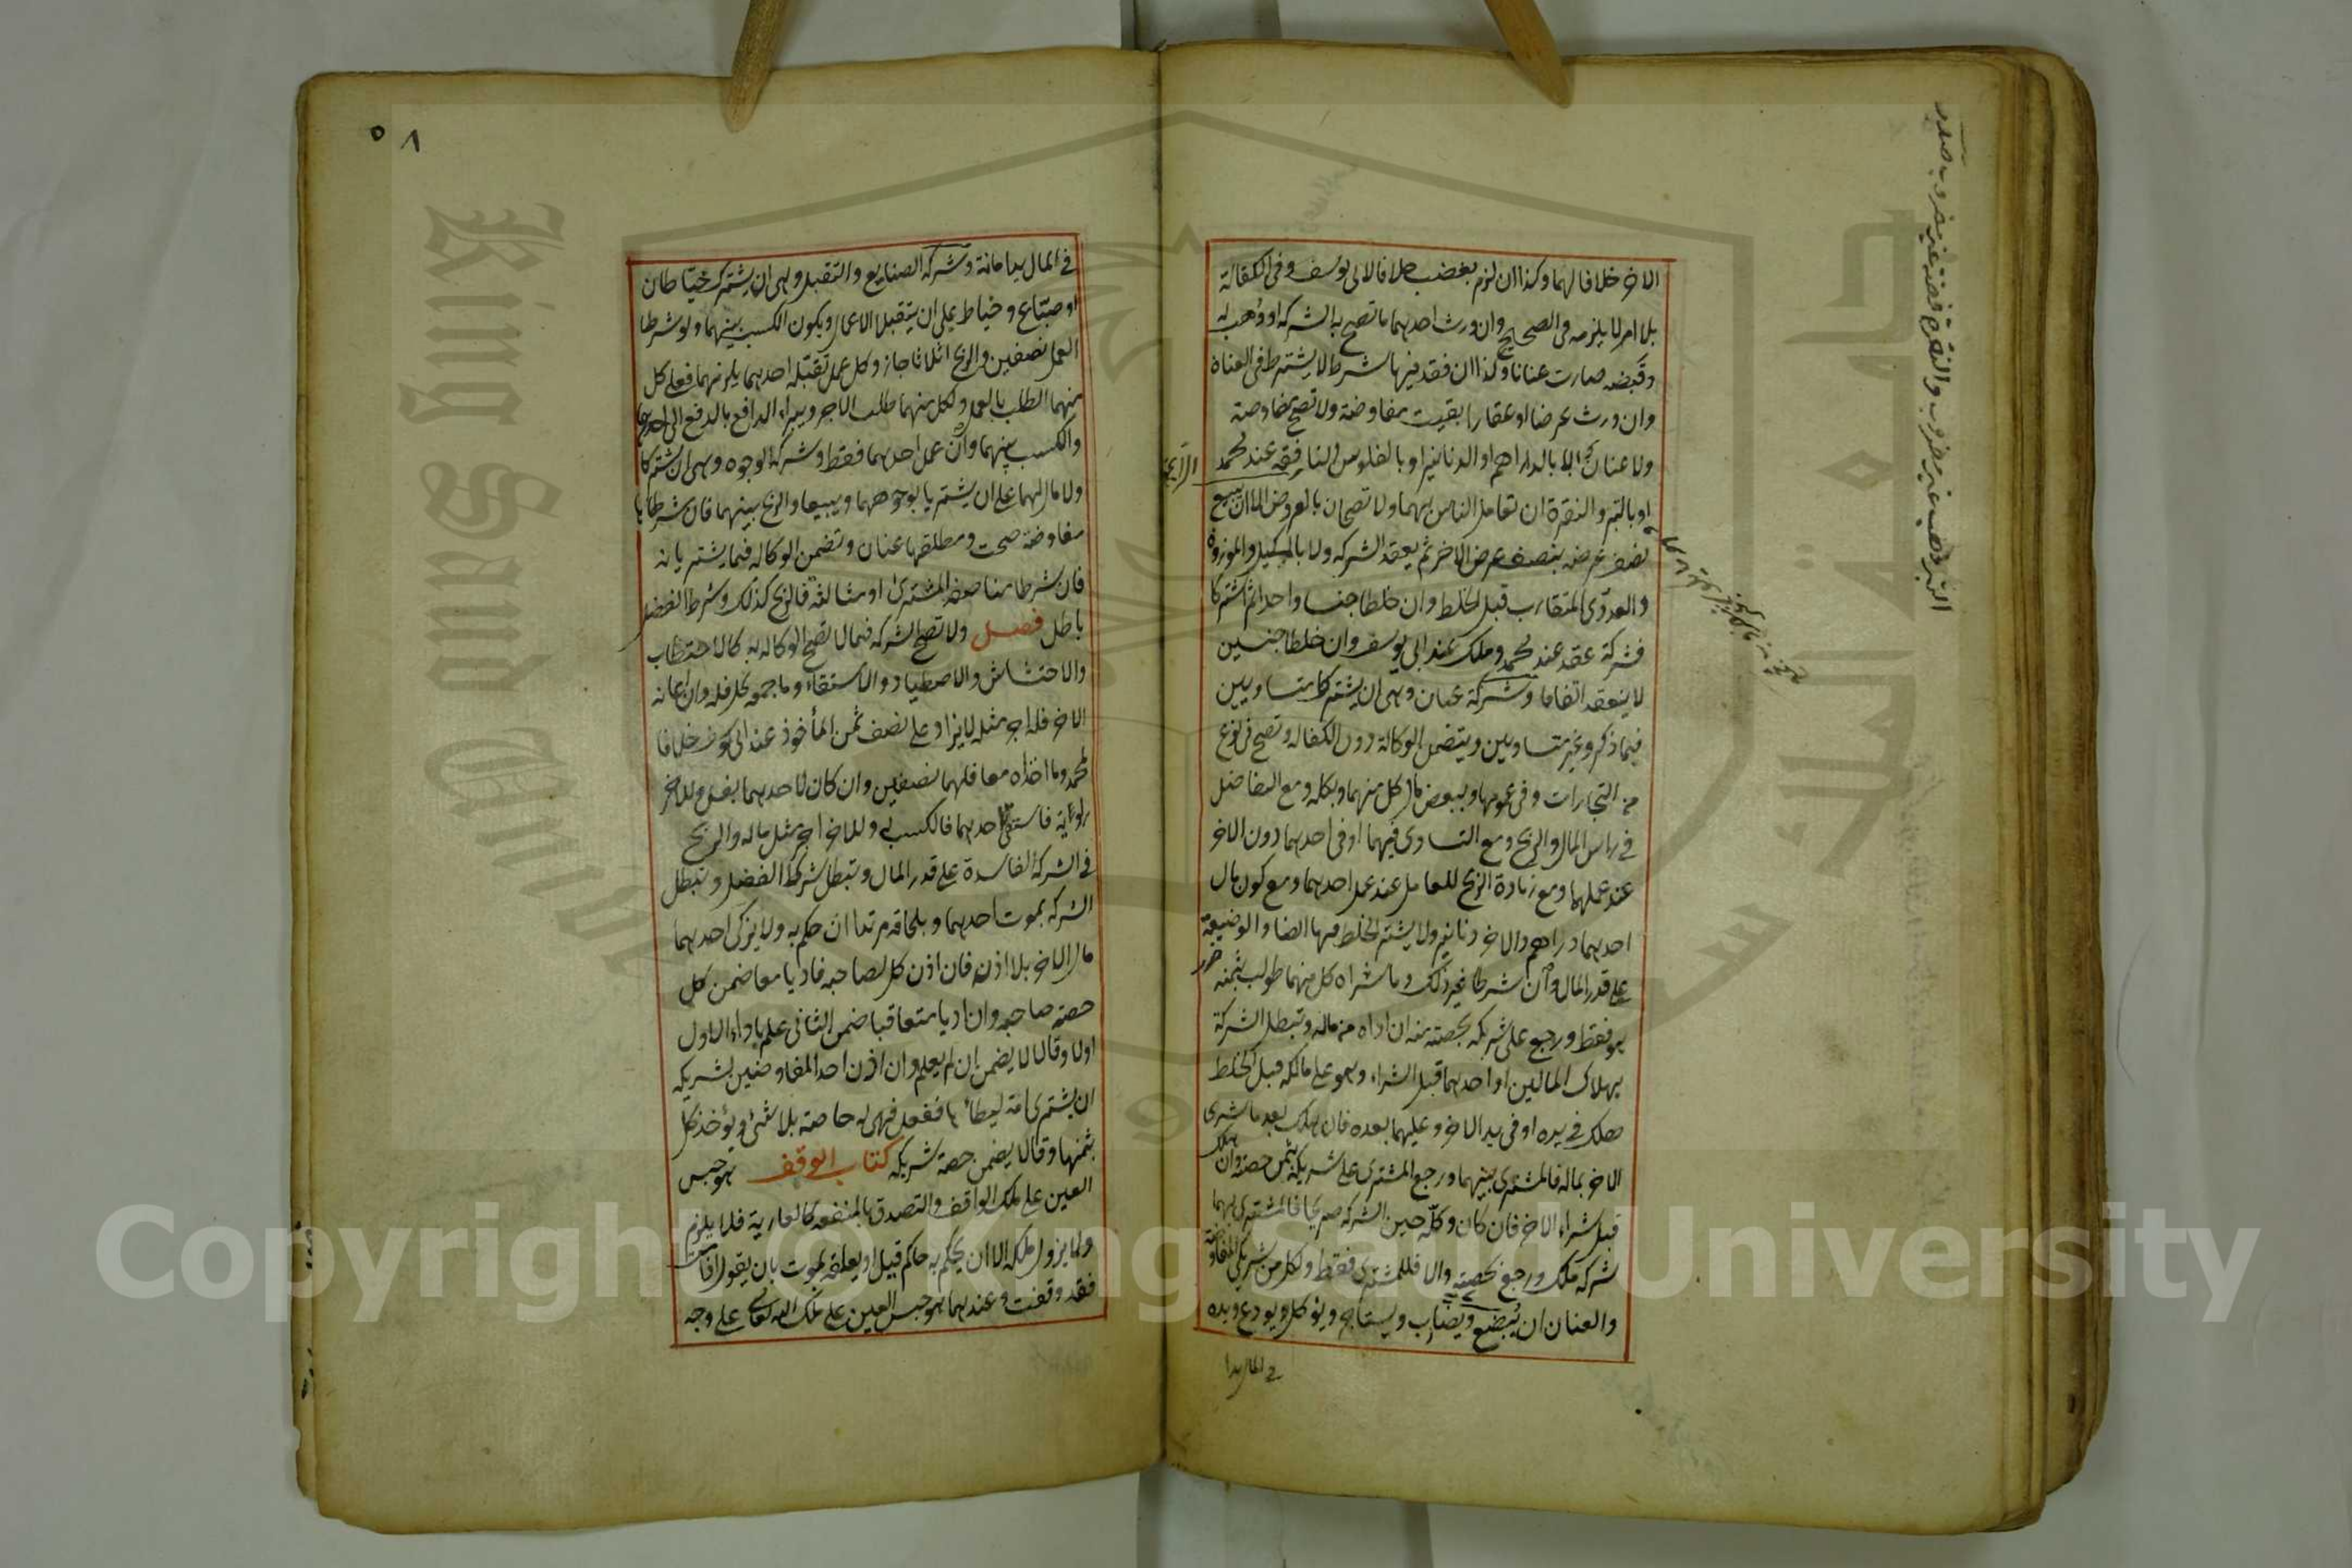 الاخر خلافا لهما وكذا ان لزم بغصب خلافا لابى يوسف وفى الكفالة
بلا امر لا يلزمه فى الصحيح وان ورث احدهما ما تصح به الشركه او وُهب له
وقبضه صارت عنانا وكذا ان فقد فيها شرط لا يشترط فى العنان
وان ورث عرضا او عقارا بقيت مفاوضة ولا تصح مفاوضة
ولا عنان الا بالدراهم او الدنانير او بالفلوس النافقه عند محمد
الرايجة
او بالتبر والنقرة ان تعامل الناس بهما ولا تصحان بالعروض الا ان يبيع
نصف عرضه بنصف عرض الاخر ثم يعقد الشركه ولا بالمكيل والموزون
والعددى المتقارب قبل الخلط وان خلطا جنسا واحدا ثم اشتركا
فشركة عقد عند محمد وملك عند ابى يوسف وان خلطا جنسين
لا ينعقد اتفاقا وشركة عنان وهى ان يشتركا متساويين
فيما ذكر وغير متساويين ويتضمن الوكالة دون الكفاله وتصح فى نوع
من التجارات وفى عمومها وببعض مال كل منهما وبكله ومع التفاضل
فى راس المال والربح ومع التساوى فيهما او فى احدهما دون الاخر
عند عملهما ومع زيادة الربح للعامل عند عمل احدهما ومع كون مال
احدهما دراهم والاخر دنانير ولا يشترط الخلط فيها ايضا والوضيعة
على قدر المال وان شرطا غير ذلك وما شراه كل منهما طولب بثمنه
هو فقط ورجع على شريكه بحصته منه ان اداه من ماله وتبطل الشركة
بهلاك المالين او احدهما قبل الشراء وهو على مالكه قبل الخلط
هلك فى يده او فى يد الاخر وعليهما بعده فان هلك بعد ما شرى
الاخر بماله فالمشترى بينهما ورجع المشترى على شريكه بثمن حصته وان هلك
قبل شراء الاخر فان كان وكله حين الشركه صريحا فالمشترى لهما
شركه ملك ورجع بحصته والا فللمشترى فقط ولكل من شريكى المفاوضة
والعنان ان يُبضع ويضارب ويستاجر ويوكل ويودع ويده
فى المال يدا
التبر ذهب غير مضروب والنقرة فضة غير مضروب
٥٨
فى المال يد امانة وشركه الصنايع والتقبل وهى ان يشترك خياطان
او صباغ وخياط على ان يتقبلا الاعمال ويكون الكسب بينهما ولو شرطا
العمل نصفين والربح اثلاثا جاز وكل عمل تقبله احدهما يلزمهما فعلى كل
منهما الطلب بالعمل ولكل منهما طلب الاجر ويبراء الدافع بالدفع الى احدهما
والكسب بينهما وان عمل احدهما فقط وشركه الوجوه وهى ان يشتركا
ولا مال لهما على ان يشتريا بوجوههما ويبيعا والربح بينهما فان شرطا
مفاوضة صحت ومطلقها عنان وتضمن الوكاله فيما يشتريانه
فان شرطا مناصفة المشترى او مثالثة فالربح كذلك وشرط الفضل
باطل فصل ولا تصح الشركه فيما لا تصح الوكاله به كالاحتطاب
والاحتشاش والاصطياد والاستقاء وما جمعه كل فله وان اعانه
الاخر فله اجر مثله لا يزاد على نصف ثمن المأخوذ عند ابى يوسف خلافا
لمحمد وما اخذاه معا فلهما نصفين وان كان لاحدهما بغل وللاخر
راوية فاستقى احدهما فالكسب له وللاخر اجر مثل ماله والربح
فى الشركة الفاسدة على قدر المال وتبطل شركه الفضل وتبطل
الشركه بموت احدهما وبلحاقه مرتدا ان حكم به ولا يزكى احدهما
مال الاخر بلا اذنه فان اذن كل لصاحبه فاديا معا ضمن كل
حصته صاحبه وان اديا متعاقبا ضمن الثانى علم باداء الاول
اولا وقالا لا يضمن ان لم يعلم وان اذن احد المفاوضين لشريكه
ان يشترى امة ليطأها ففعل فهى له خاصته بلا شئ ويؤخذ كل
بثمنها وقالا يضمن حصة شريكه كتاب الوقف هو حبس
العين على ملك الواقف والتصدق بالمنفعه كالعارية فلا يلزم
ولا يزول ملكه الا ان يحكم به حاكم قيل او يعلقه بموت بان يقول اذا مت
فقد وقفت وعندهما هو حبس العين على ملك الله تعالى على وجه
King Saud University
Copyright © King Saud University